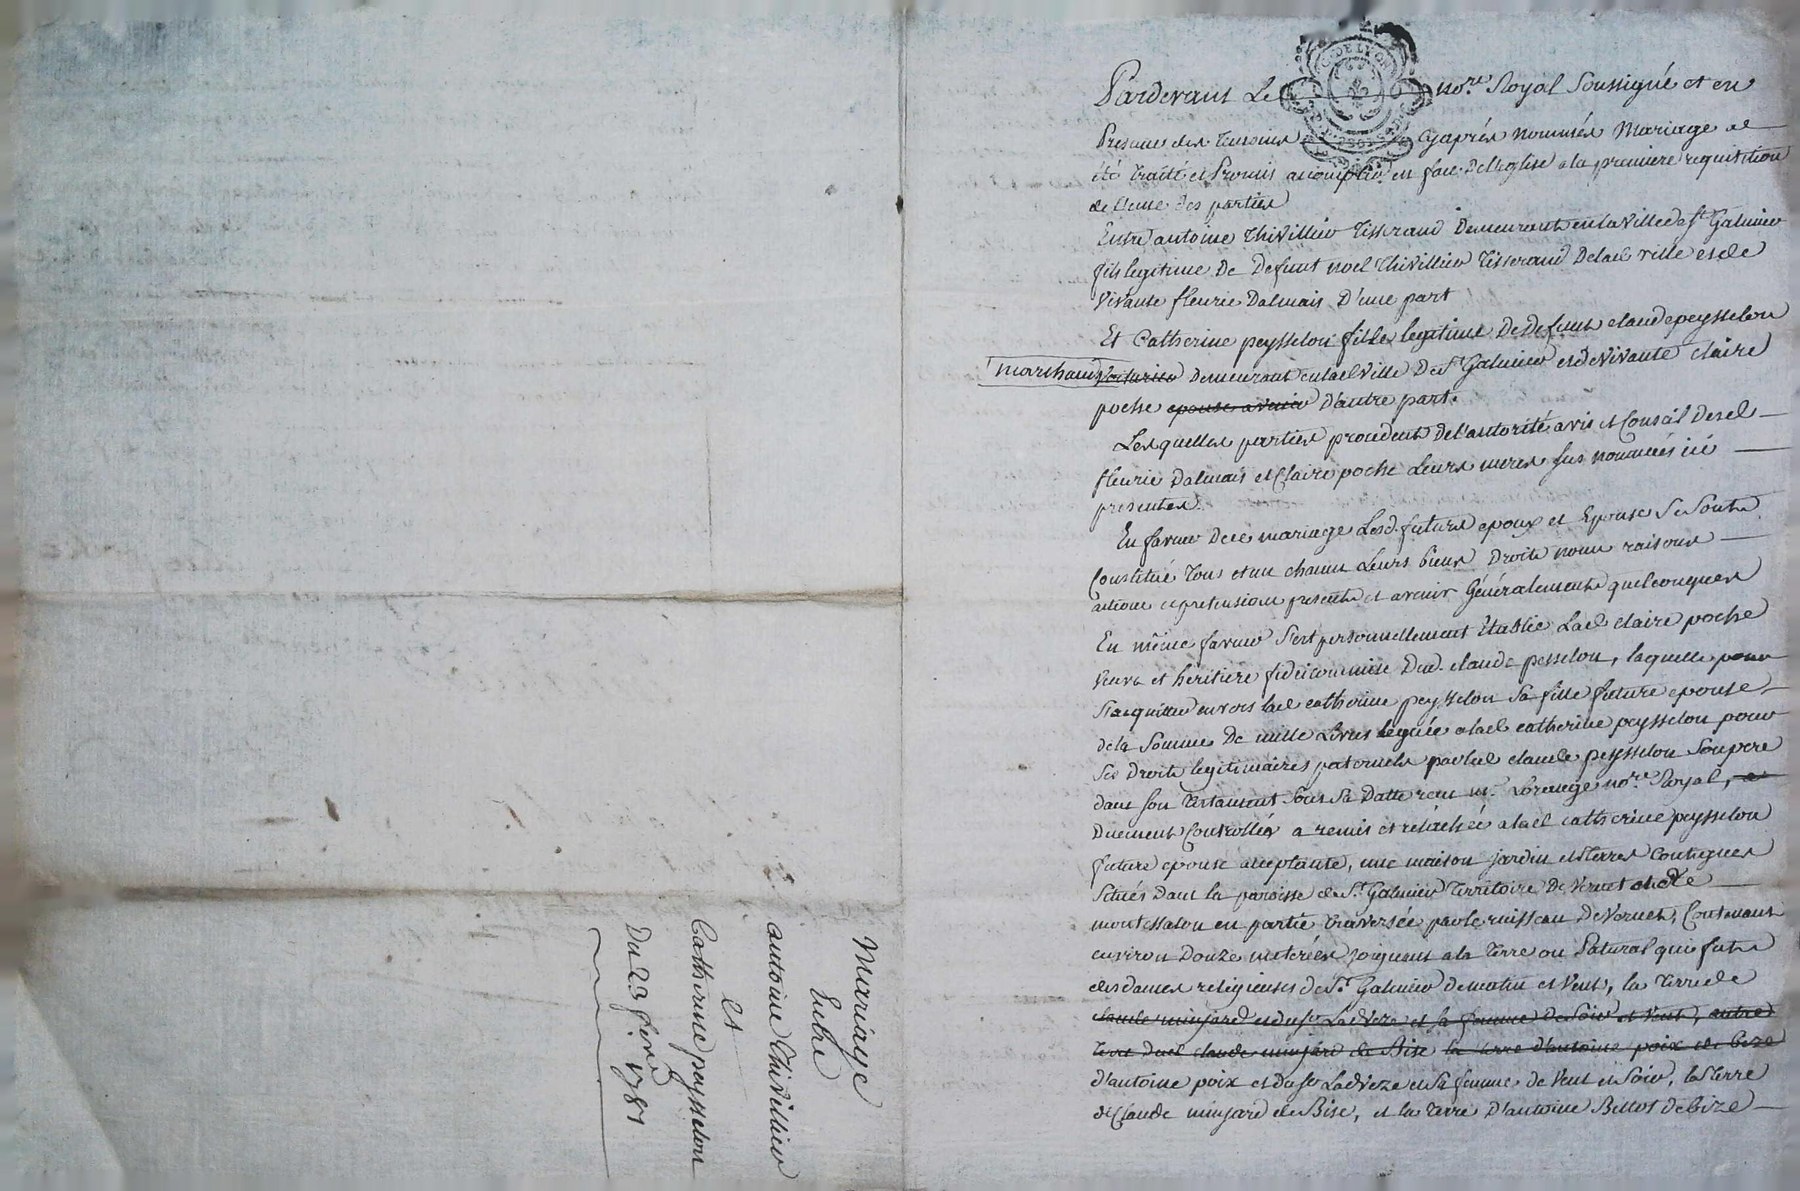 Pardevant Le no.re Royal Soussigné et en
Presence des temoins cyaprés nommés Mariage a
été traitté et Promis accomplir en face De l'eglise a la premiere requisition
de l'une des parties
Entre antoine thivillier tisserand Demeurant en la ville de st Galmier
fils legitime De Defunt noel thivillier tisserand De lad ville et de
vivante fleurie Dalmais D'une part
Et Catherine peysselon fille legitime De Defunt claude peysselon
marchand Demeurant en lad ville De st Galmier et de vivante claire
poche epouse avenir D'autre part.
Lesquelles parties procedent De l'autorité avis et Conseil Desd
fleurie Dalmais et Claire poche Leurs meres sus nommées icé
presentes
En faveur De ce mariage Lesd. futurs epoux et Epouse Se Sont
Constitué tous et un chacun Leurs biens Droits noms raisons
actions et pretensions presents et avenir Généralement quelconques
En même faveur S'est personnellement Etablie Lad claire poche
veuve et héritiere fideicommise Dud. claude peysselon, laquelle pour
S'acquitter envers lad catherine peysselon Sa fille future epouse
de la Somme De mille Livres leguée a lad catherine peysselon pour
Ses Droits legitimaires paternels par led claude peysselon Son pere
dans son testament Sous Sa Datte recu me. Lorange no.re Royal,
Duement Controllée a remis et relachée a lad catherine peysselon
future epouse acceptante, une maison jardin et terres Contigues
Situés Dans la paroisse de St. Galmier territoire De Vernet et de
montessalon en partie traversée par le ruisseau De Vernet, Contenant
environ Douze meterées joignant a la terre ou Patural qui fut
des dames religieuses de St. Galmier de matin et Vent, la terre de
claude minjard et du sr Ladveze et sa femme De Soir et Vent, autre
terre Dud claude minjard de Bise la terre d'antoine poix de bize
d'antoine poix et du sr Ladveze et Sa femme de Vent et Soir, la terre
de Claude minjard de Bise, et la terre D'antoine Bellot de bize
Marriage
Entre
antoine thivillier
et
Catherine peysselon
Du 23 fevr. 1781